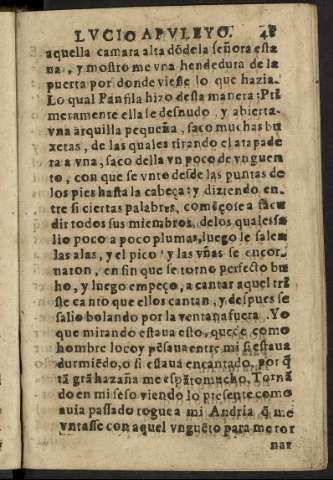 LVCIO APVLEYO. 48
aquella camara alta dõdela señora esta
ua, y mostro me vna hendedura de la
puerta por donde viesse lo que hazia.
Lo qual Panfila hizo desta manera: Pri
meramente ella se desnudo, y abierta
vna arquilla pequeña, saco muchas bu
xetas, de las quales tirando el atapade
ra a vna, saco della vn poco de vnguen
to, con que se vnto desde las puntas de
los pies hasta la cabeça: y diziendo en
tre si ciertas palabras, començose a sacu
dir todos sus miembros, delos quales sa
lio poco a poco plumas, luego le salen
las alas, y el pico y las vñas se encor
naron, en fin que se torno perfecto bu
ho, y luego empeço, a cantar aquel tri
ste canto que ellos cantan, y despues se
salio bolando por la ventana fuera. Yo
que mirando estaua esto, quede como
hombre loco y pẽsaua entre mi si estaua
durmiẽdo, o si estaua encantado, por q̃
tã grã hazaña me espãto mucho. Tornã
do en mi seso viendo lo presente como
auia passado rogue a mi Andria q̃ me
vntasse con aquel vnguẽto para me tor
nar